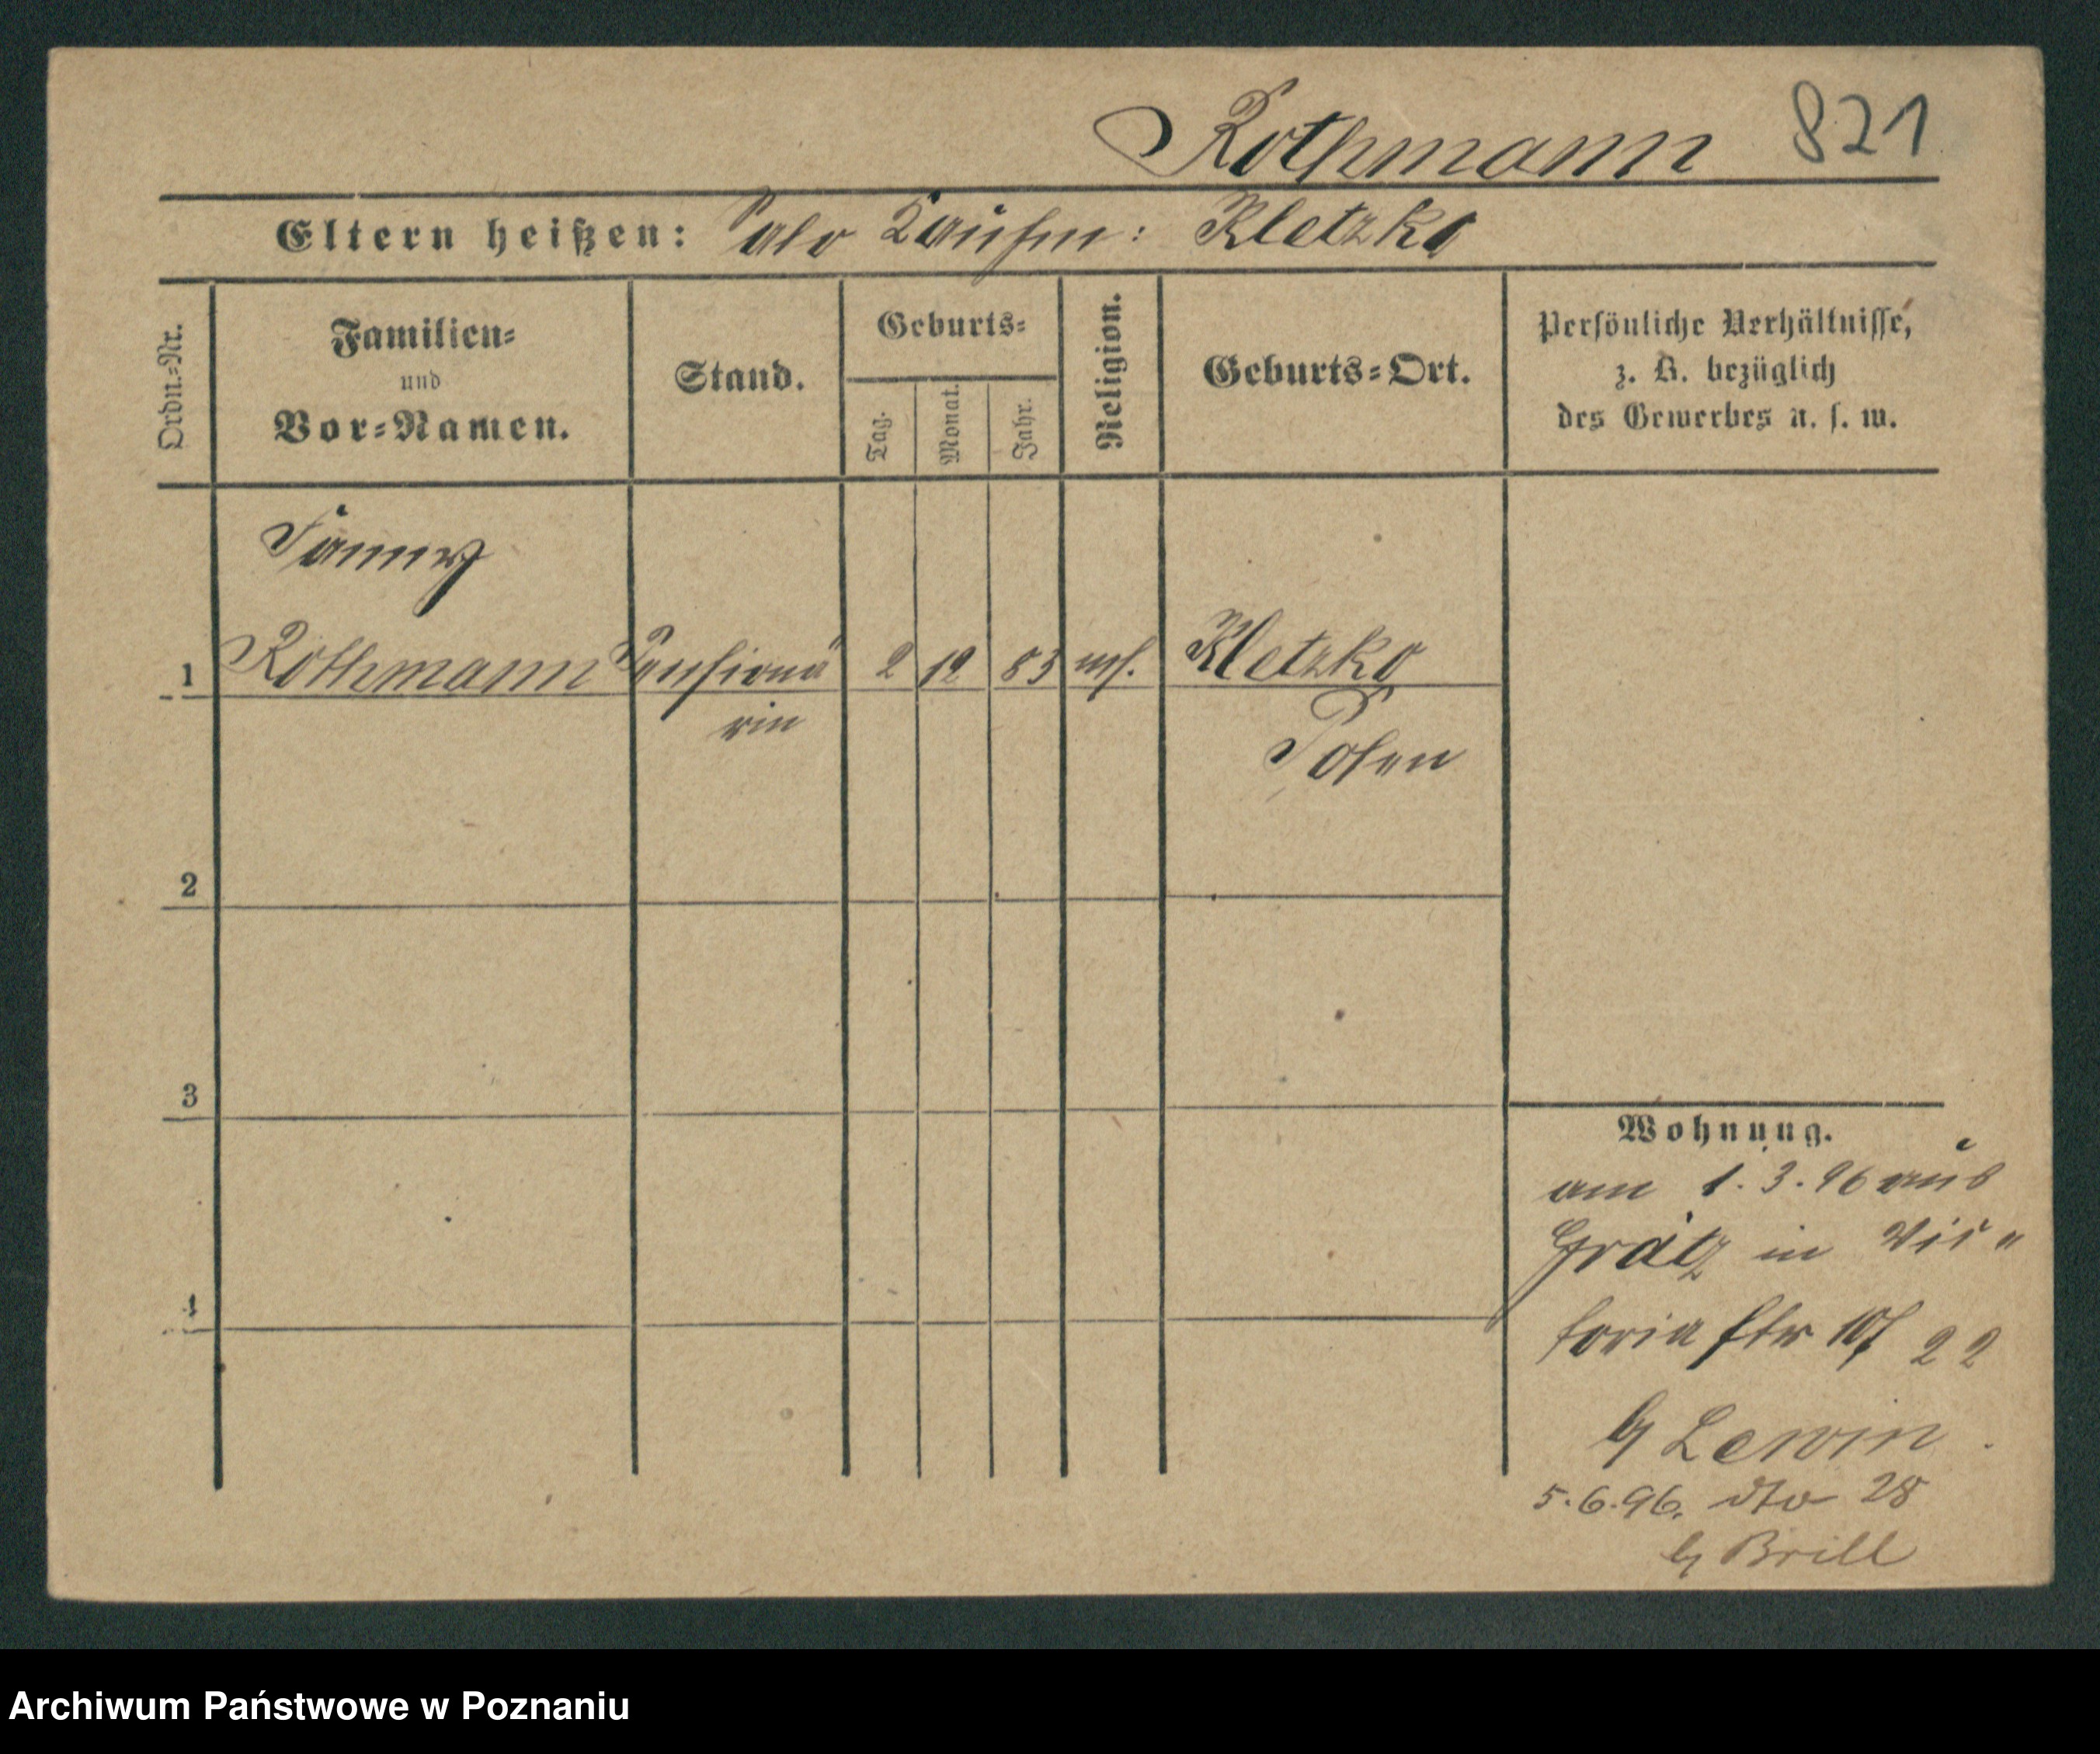 Rothmann 821
Eltern heißen: Kaufm: Kletzko
Ordn.=Nr.
Familien=
und
Vor=Namen.
Stand.
Geburts=
Tag.
Monat.
Jahr.
Religion.
Geburts=Ort.
Persönliche Verhältnisse,
z. B. bezüglich
des Gewerbes u. s. w.
Fanny
1 Rothmann Pensionä 2 12 83 ms. Kletzko
rin Posen
2
3
4
Wohnung.
am 1. 3. 96 aus
Grätz in Vic"
toriastr 22
b/ Lewin.
5.6.96. dto 28
b/ Brill
Archiwum Państwowe w Poznaniu